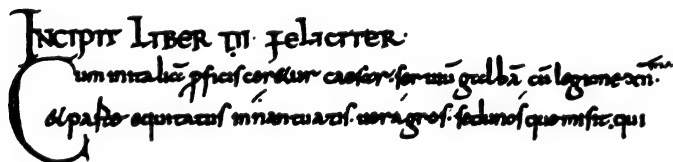 INCIPIT LIBER III · FELICITER ·
Cum initaliā proficisceretur caesar · seruiū galbā cū legione xii ma ·
et parte equitatus in nantuatis · ueragros · sedunosque misit, qui